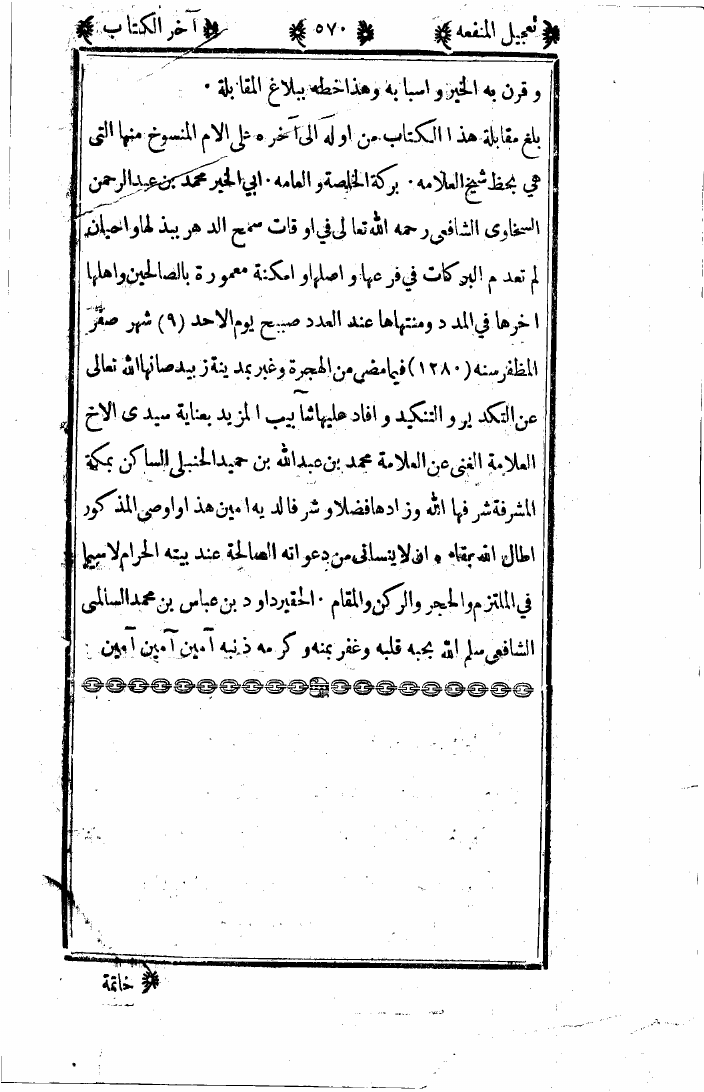 تعجيل المنفعه ٥٧٠ آخر الكتاب
و قرن به الخير و اسبابه وهذا خطه ببلاغ المقابلة ٠
بلغ مقابلة هذا الكتاب من اوله الى آخره على الام المنسوخ منها التى
هي بخط شيخ العلامه ٠ بركة الخاصة و العامه ٠ ابي الخير محمد بن عبدالرحمن
السخاوى الشافعي رحمه الله تعالى في اوقات سمح الدهر ببذلها و احيان
لم تعدم البركات في فرعها و اصلها و امكنة معمورة بالصالحين و اهلها
اخرها في المدد ومنتهاها عند العدد صبيح يوم الاحد (٩) شهر صفر
المظفر سنه (١٢٨٠) فيما مضى من الهجرة وغبر بمدينة زبيد صانها الله تعالى
عن التكدير و التنكيد و افاد عليها شآبيب المزيد بعناية سيدى الاخ
العلامة الغنى عن العلامة محمد بن عبدالله بن حميد الحنبلى الساكن بمكة
المشرفة شرفها الله وزادها فضلا و شرفا لديه امين هذا و اوصى المذكور
اطال الله بقاءه ان لا ينسانى من دعواته الصالحة عند بيته الحرام لا سيما
في الملتزم والحجر والركن والمقام ٠ الحقير داود بن عباس بن محمد السالمى
الشافعى سلم الله بحبه قلبه وغفر بمنه و كرمه ذنبه آمين آمين آمين
خاتمة